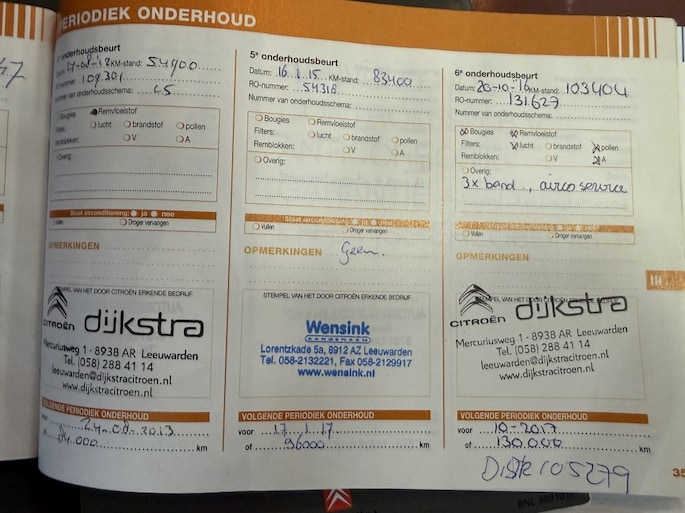 PERIODIEK ONDERHOUD
47
onderhoudsbeurt
KM-stand: 54900
RO-nummer: 109301
Nummer van onderhoudsschema:
Bougies Remvloeistof
Filters: lucht brandstof pollen
Remblokken: V A
Overig:
Staat airconditioning: ja nee
Vullen Droger vervangen
OPMERKINGEN
STEMPEL VAN HET DOOR CITROËN ERKENDE BEDRIJF
CITROËN dijkstra
Mercuriusweg 1 - 8938 AR Leeuwarden
Tel. (058) 288 41 14
leeuwarden@dijkstracitroen.nl
www.dijkstracitroen.nl
VOLGENDE PERIODIEK ONDERHOUD
voor 24-08-2013
of 84.000 km
5e onderhoudsbeurt
Datum: 16.1.15 KM-stand: 83400
RO-nummer: 54318
Nummer van onderhoudsschema:
Bougies Remvloeistof
Filters: lucht brandstof pollen
Remblokken: V A
Overig:
Staat airconditioning: ja nee
Vullen Droger vervangen
OPMERKINGEN Geen.
STEMPEL VAN HET DOOR CITROËN ERKENDE BEDRIJF
Wensink
AANGENAAM
Lorentzkade 5a, 8912 AZ Leeuwarden
Tel. 058-2132221, Fax 058-2129917
www.wensink.nl
VOLGENDE PERIODIEK ONDERHOUD
voor 17.1.17
of 96000 km
6e onderhoudsbeurt
Datum: 20-10-'16 KM-stand: 103404
RO-nummer: 131.627
Nummer van onderhoudsschema:
Bougies Remvloeistof
Filters: lucht brandstof pollen
Remblokken: V A
Overig:
3x band., airco service
Staat airconditioning: ja nee
Vullen Droger vervangen
OPMERKINGEN
STEMPEL VAN HET DOOR CITROËN ERKENDE BEDRIJF
CITROËN dijkstra
Mercuriusweg 1 - 8938 AR Leeuwarden
Tel. (058) 288 41 14
leeuwarden@dijkstracitroen.nl
www.dijkstracitroen.nl
VOLGENDE PERIODIEK ONDERHOUD
voor 10-2017
of 130.000 km
105279
35